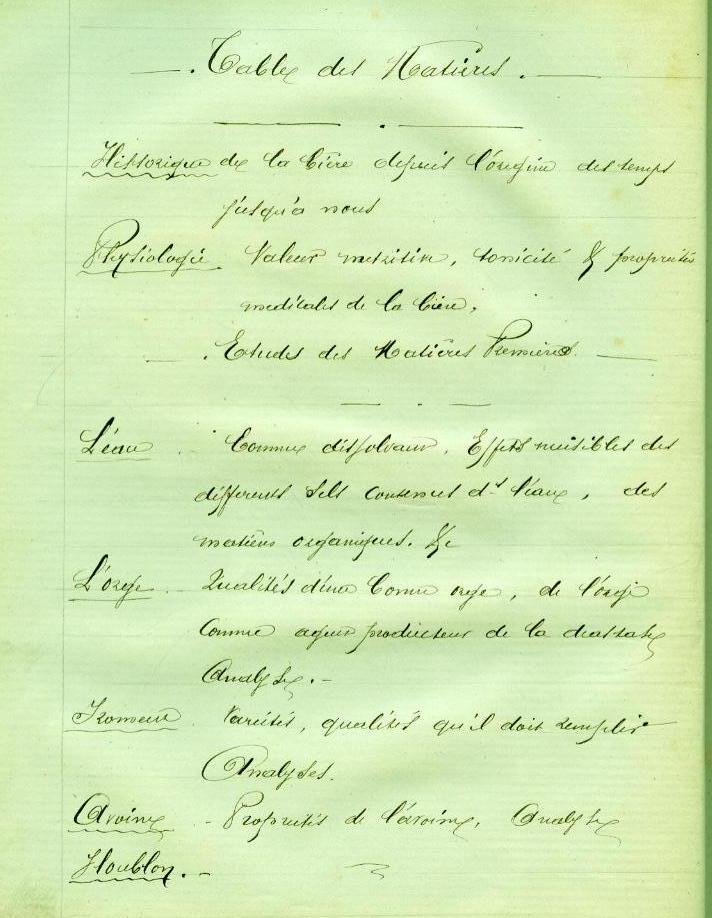 Table des Matières.
Historique de la bière depuis l'origine des temps
jusqu'à nous
Physiologie Valeur nutritive, tonicité & propriétés
médicales de la bière.
Etudes des Matières Premières.
L'eau Comme dissolvant, Effets nuisibles des
différents sels contenus ds l'eau, des
matières organiques. &c
L'orge Qualités d'une bonne orge, de l'orge
comme agent producteur de la diastase
Analyse.-
Froment Variétés, qualités qu'il doit remplir
Analyses.
Avoine - Propriétés de l'avoine, Analyse
Houblon.-